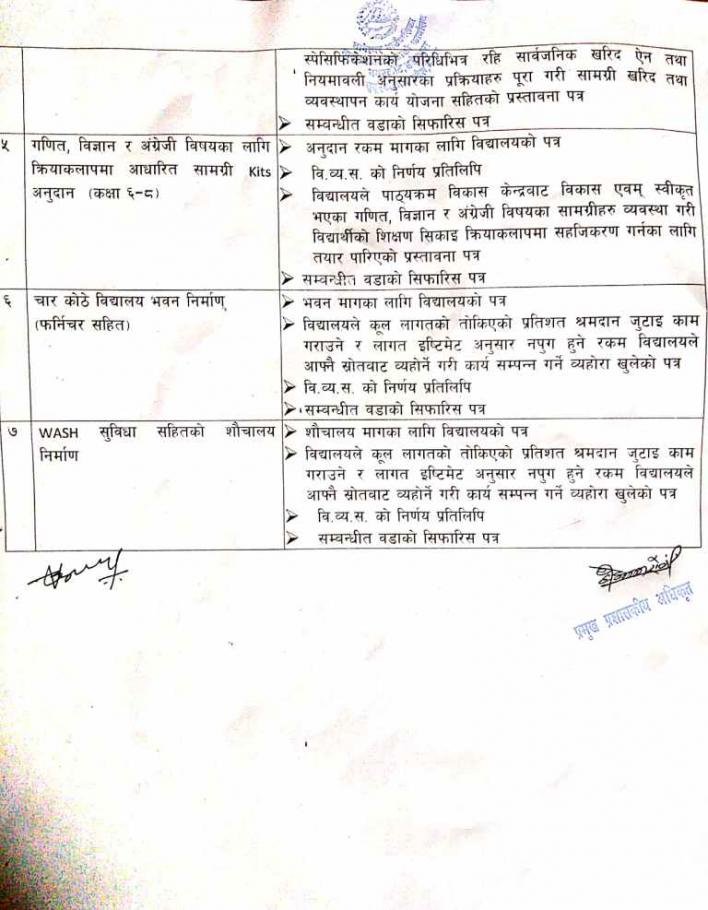 स्पेसिफिकेशनको परिधिभित्र रहि सार्वजनिक खरिद ऐन तथा
नियमावली अनुसारका प्रक्रियाहरु पूरा गरी सामग्री खरिद तथा
व्यवस्थापन कार्य योजना सहितको प्रस्तावना पत्र
➢ सम्वन्धीत वडाको सिफारिस पत्र
५ गणित, विज्ञान र अंग्रेजी विषयका लागि
क्रियाकलापमा आधारित सामग्री Kits
अनुदान (कक्षा ६-८)
➢ अनुदान रकम मागका लागि विद्यालयको पत्र
➢ वि.व्य.स. को निर्णय प्रतिलिपि
➢ विद्यालयले पाठ्यक्रम विकास केन्द्रवाट विकास एवम् स्वीकृत
भएका गणित, विज्ञान र अंग्रेजी विषयका सामग्रीहरु व्यवस्था गरी
विद्यार्थीको शिक्षण सिकाइ क्रियाकलापमा सहजिकरण गर्नका लागि
तयार पारिएको प्रस्तावना पत्र
➢ सम्वन्धीत वडाको सिफारिस पत्र
६ चार कोठे विद्यालय भवन निर्माण
(फर्निचर सहित)
➢ भवन मागका लागि विद्यालयको पत्र
➢ विद्यालयले कूल लागतको तोकिएको प्रतिशत श्रमदान जुटाइ काम
गराउने र लागत इष्टिमेट अनुसार नपुग हुने रकम विद्यालयले
आफ्नै स्रोतवाट व्यहोर्ने गरी कार्य सम्पन्न गर्ने व्यहोरा खुलेको पत्र
➢ वि.व्य.स. को निर्णय प्रतिलिपि
➢ सम्वन्धीत वडाको सिफारिस पत्र
७ WASH सुविधा सहितको शौचालय
निर्माण
➢ शौचालय मागका लागि विद्यालयको पत्र
➢ विद्यालयले कूल लागतको तोकिएको प्रतिशत श्रमदान जुटाइ काम
गराउने र लागत इष्टिमेट अनुसार नपुग हुने रकम विद्यालयले
आफ्नै स्रोतवाट व्यहोर्ने गरी कार्य सम्पन्न गर्ने व्यहोरा खुलेको पत्र
➢ वि.व्य.स. को निर्णय प्रतिलिपि
➢ सम्वन्धीत वडाको सिफारिस पत्र
प्रमुख प्रशासकीय अधिकृत